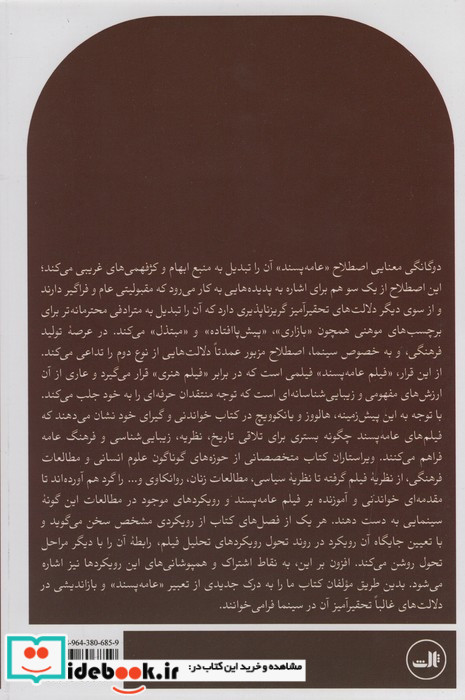 دوگانگی معنایی اصطلاح «عامه‌پسند» آن را تبدیل به منبع ابهام و کژفهمی‌های غریبی می‌کند؛
این اصطلاح از یک سو هم برای اشاره به پدیده‌هایی به کار می‌رود که مقبولیتی عام و فراگیر دارند
و از سوی دیگر دلالت‌های تحقیرآمیز گریزناپذیری دارد که آن را تبدیل به مترادفی محترمانه‌تر برای
برچسب‌های موهنی همچون «بازاری»، «پیش‌پاافتاده» و «مبتذل» می‌کند. در عرصهٔ تولید
فرهنگی، و به خصوص سینما، اصطلاح مزبور عمدتاً دلالت‌هایی از نوع دوم را تداعی می‌کند.
از این قرار، «فیلم عامه‌پسند» فیلمی است که در برابر «فیلم هنری» قرار می‌گیرد و عاری از آن
ارزش‌های مفهومی و زیبایی‌شناسانه‌ای است که توجه منتقدان حرفه‌ای را به خود جلب می‌کند.
با توجه به این پیش‌زمینه، هالووز و یانکوویچ در کتاب خواندنی و گیرای خود نشان می‌دهند که
فیلم‌های عامه‌پسند چگونه بستری برای تلاقی تاریخ، نظریه، زیبایی‌شناسی و فرهنگ عامه
فراهم می‌کنند. ویراستاران کتاب متخصصانی از حوزه‌های گوناگون علوم انسانی و مطالعات
فرهنگی، از نظریهٔ فیلم گرفته تا نظریهٔ سیاسی، مطالعات زنان، روانکاوی و... را گرد هم آورده‌اند تا
مقدمه‌ای خواندنی و آموزنده بر فیلم عامه‌پسند و رویکردهای موجود در مطالعات این گونهٔ
سینمایی به دست دهند. هر یک از فصل‌های کتاب از رویکردی مشخص سخن می‌گوید و
با تعیین جایگاه آن رویکرد در روند تحول رویکردهای تحلیل فیلم، رابطهٔ آن را با دیگر مراحل
تحول روشن می‌کند. افزون بر این، به نقاط اشتراک و همپوشانی‌های این رویکردها نیز اشاره
می‌شود. بدین طریق مؤلفان کتاب ما را به درک جدیدی از تعبیر «عامه‌پسند» و بازاندیشی در
دلالت‌های غالباً تحقیرآمیز آن در سینما فرامی‌خوانند.
964-380-685-9
مشاهده و خرید این کتاب در:
idebook.ir
ثالث